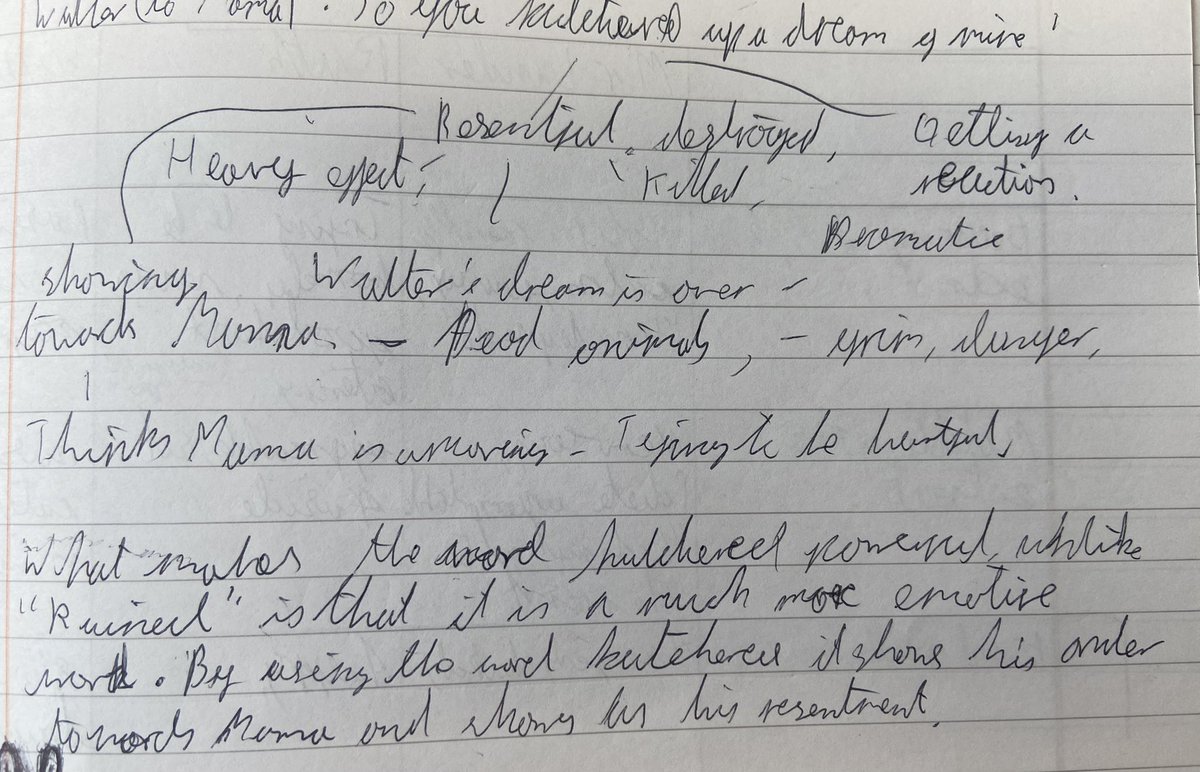 Walter (to Mama). So you butchered up a dream of mine'
Resentful, destroyed, Getting a
Heavy effect, Killed, reaction.
Dramatic
showing Walter's dream is over -
towards Mama - Dead animals, - grim, danger,
Thinks Mama is - Trying to be hurtful,
What makes the word butchered powerful, unlike
"Ruined" is that it is a much more emotive
word. By using the word butchered it shows his
towards Mama and shows us his resentment.